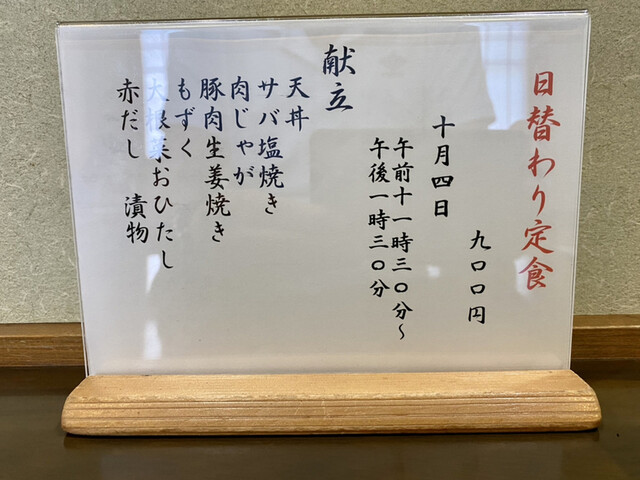 日替わり定食
九〇〇円
十月四日
午前十一時三〇分～
午後一時三〇分
献立
天丼
サバ塩焼き
肉じゃが
豚肉生姜焼き
もずく
大根菜おひたし
赤だし 漬物